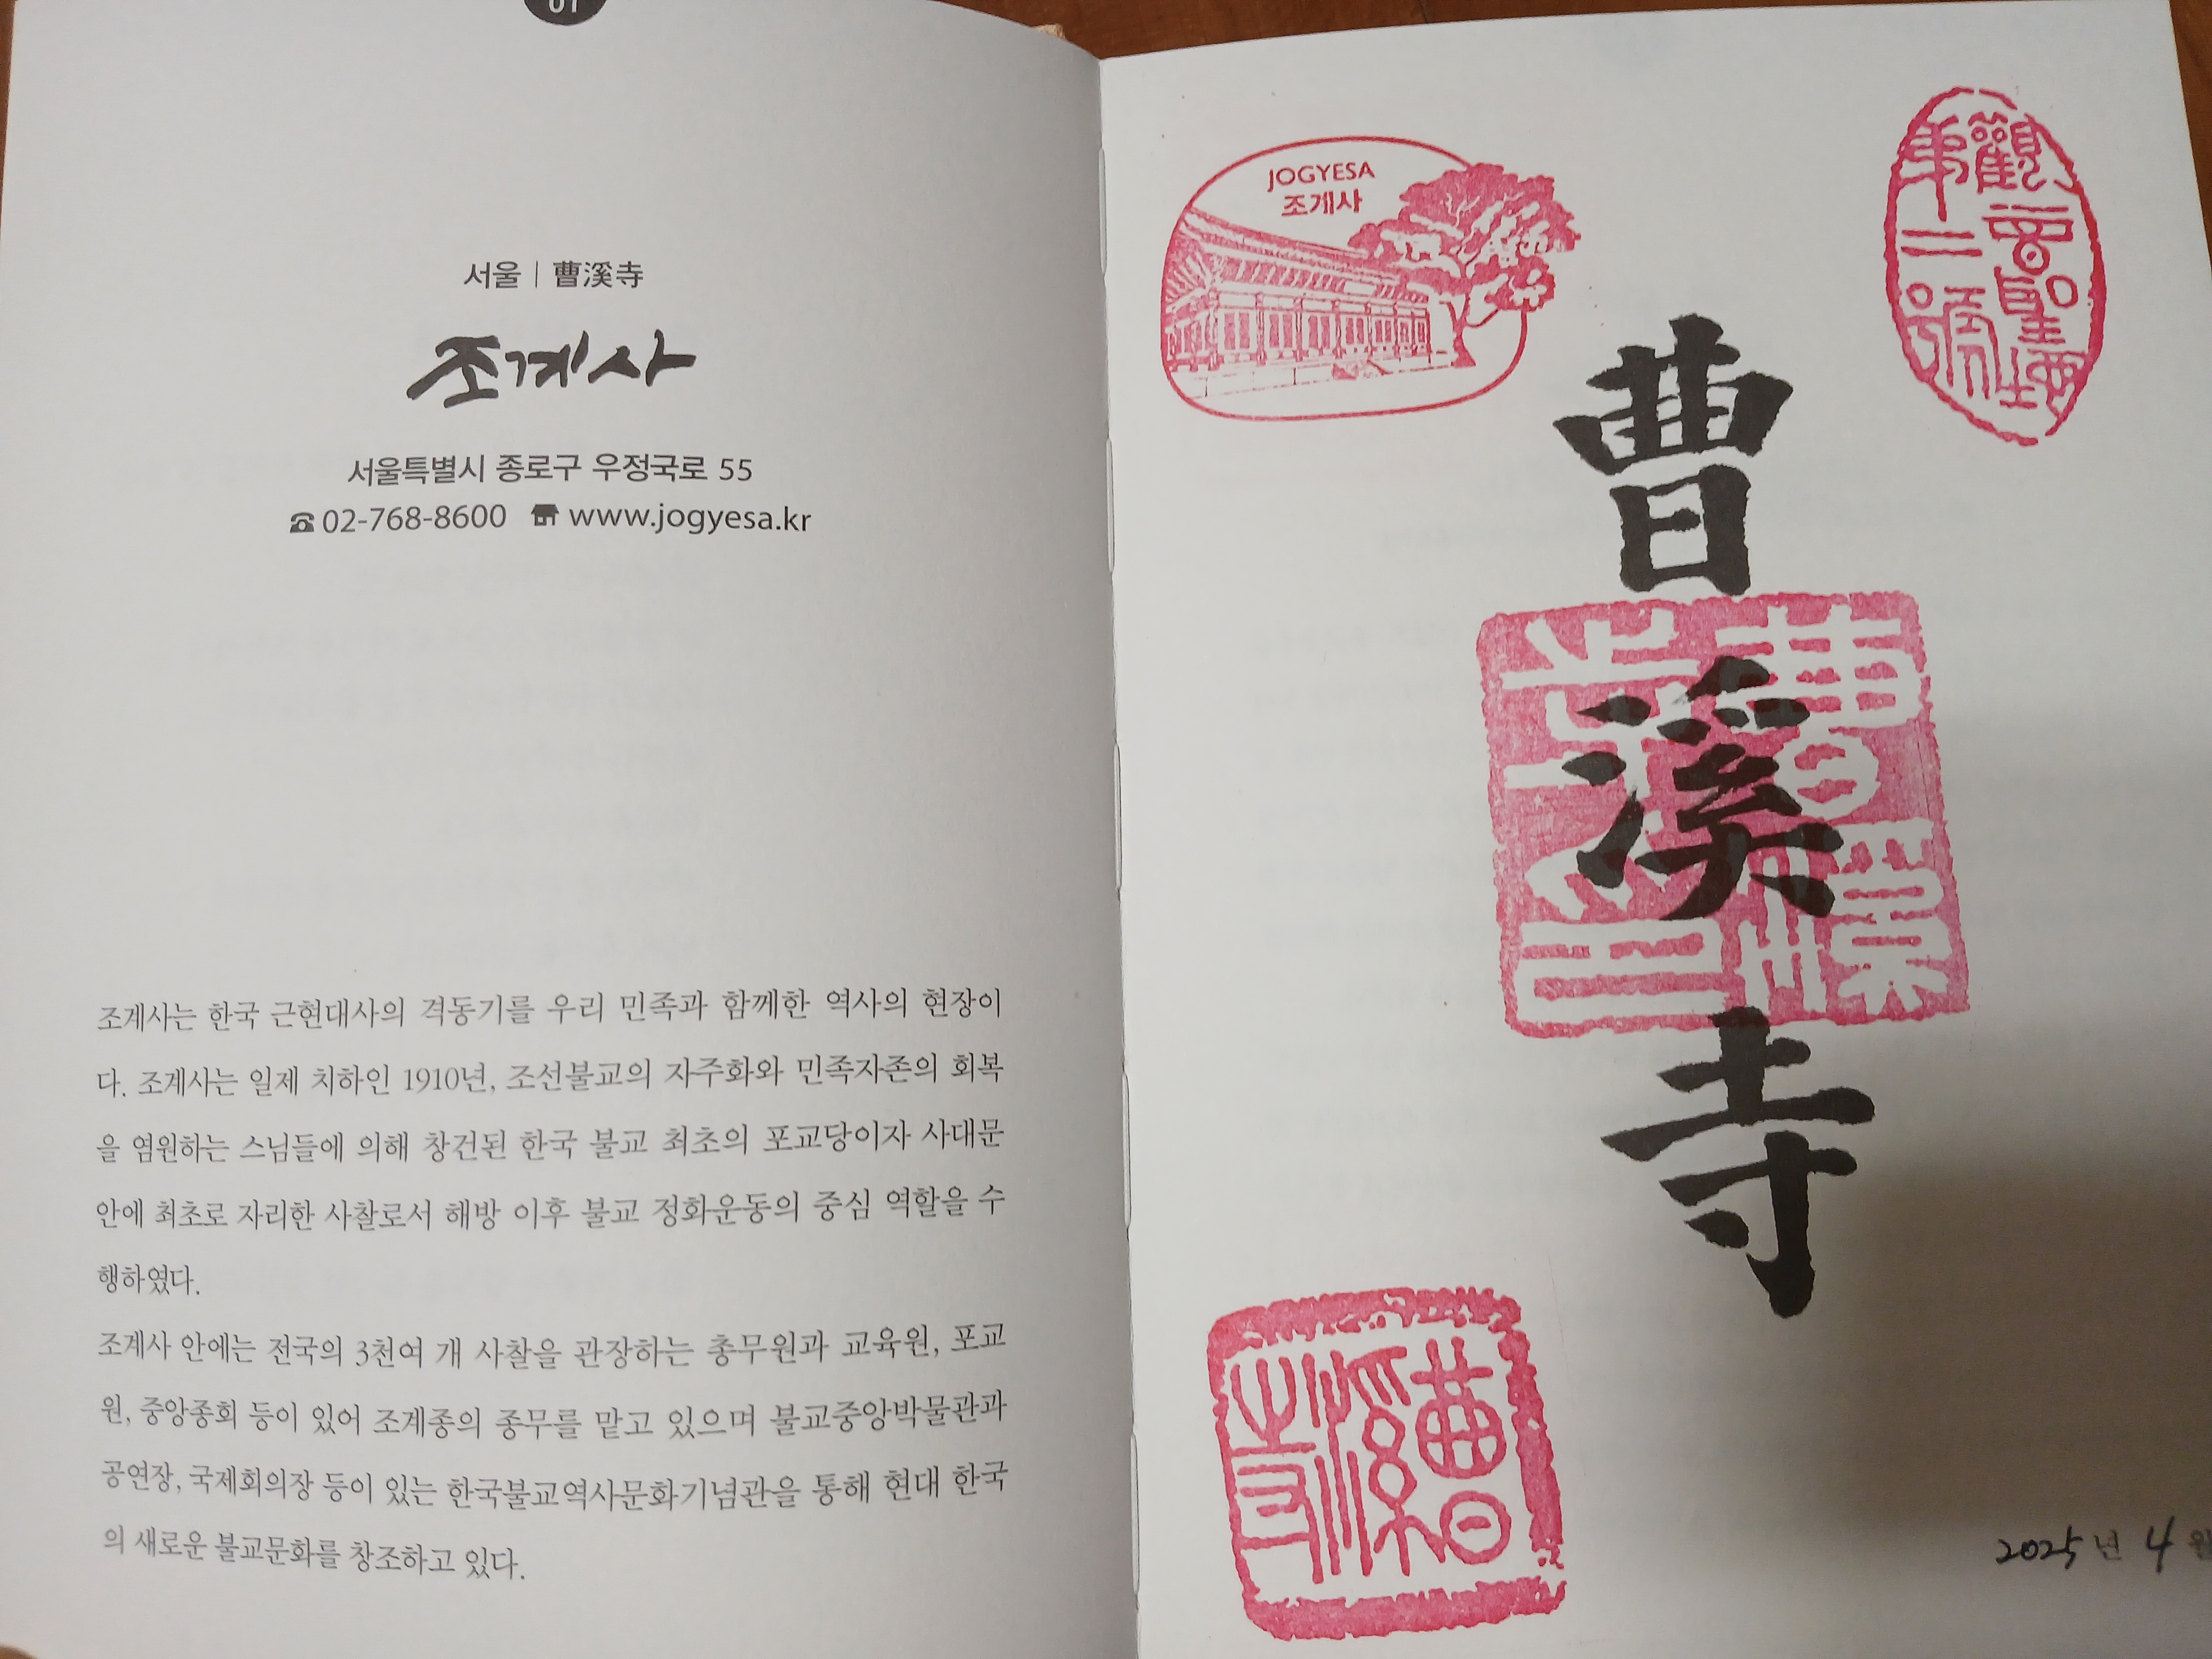 01
서울 | 曹溪寺
조계사
서울특별시 종로구 우정국로 55
☎ 02-768-8600 www.jogyesa.kr
조계사는 한국 근현대사의 격동기를 우리 민족과 함께한 역사의 현장이
다. 조계사는 일제 치하인 1910년, 조선불교의 자주화와 민족자존의 회복
을 염원하는 스님들에 의해 창건된 한국 불교 최초의 포교당이자 사대문
안에 최초로 자리한 사찰로서 해방 이후 불교 정화운동의 중심 역할을 수
행하였다.
조계사 안에는 전국의 3천여 개 사찰을 관장하는 총무원과 교육원, 포교
원, 중앙종회 등이 있어 조계종의 종무를 맡고 있으며 불교중앙박물관과
공연장, 국제회의장 등이 있는 한국불교역사문화기념관을 통해 현대 한국
의 새로운 불교문화를 창조하고 있다.
JOGYESA
조계사
觀音聖地
第二號
曹溪寺
曹溪寺
2025년 4월